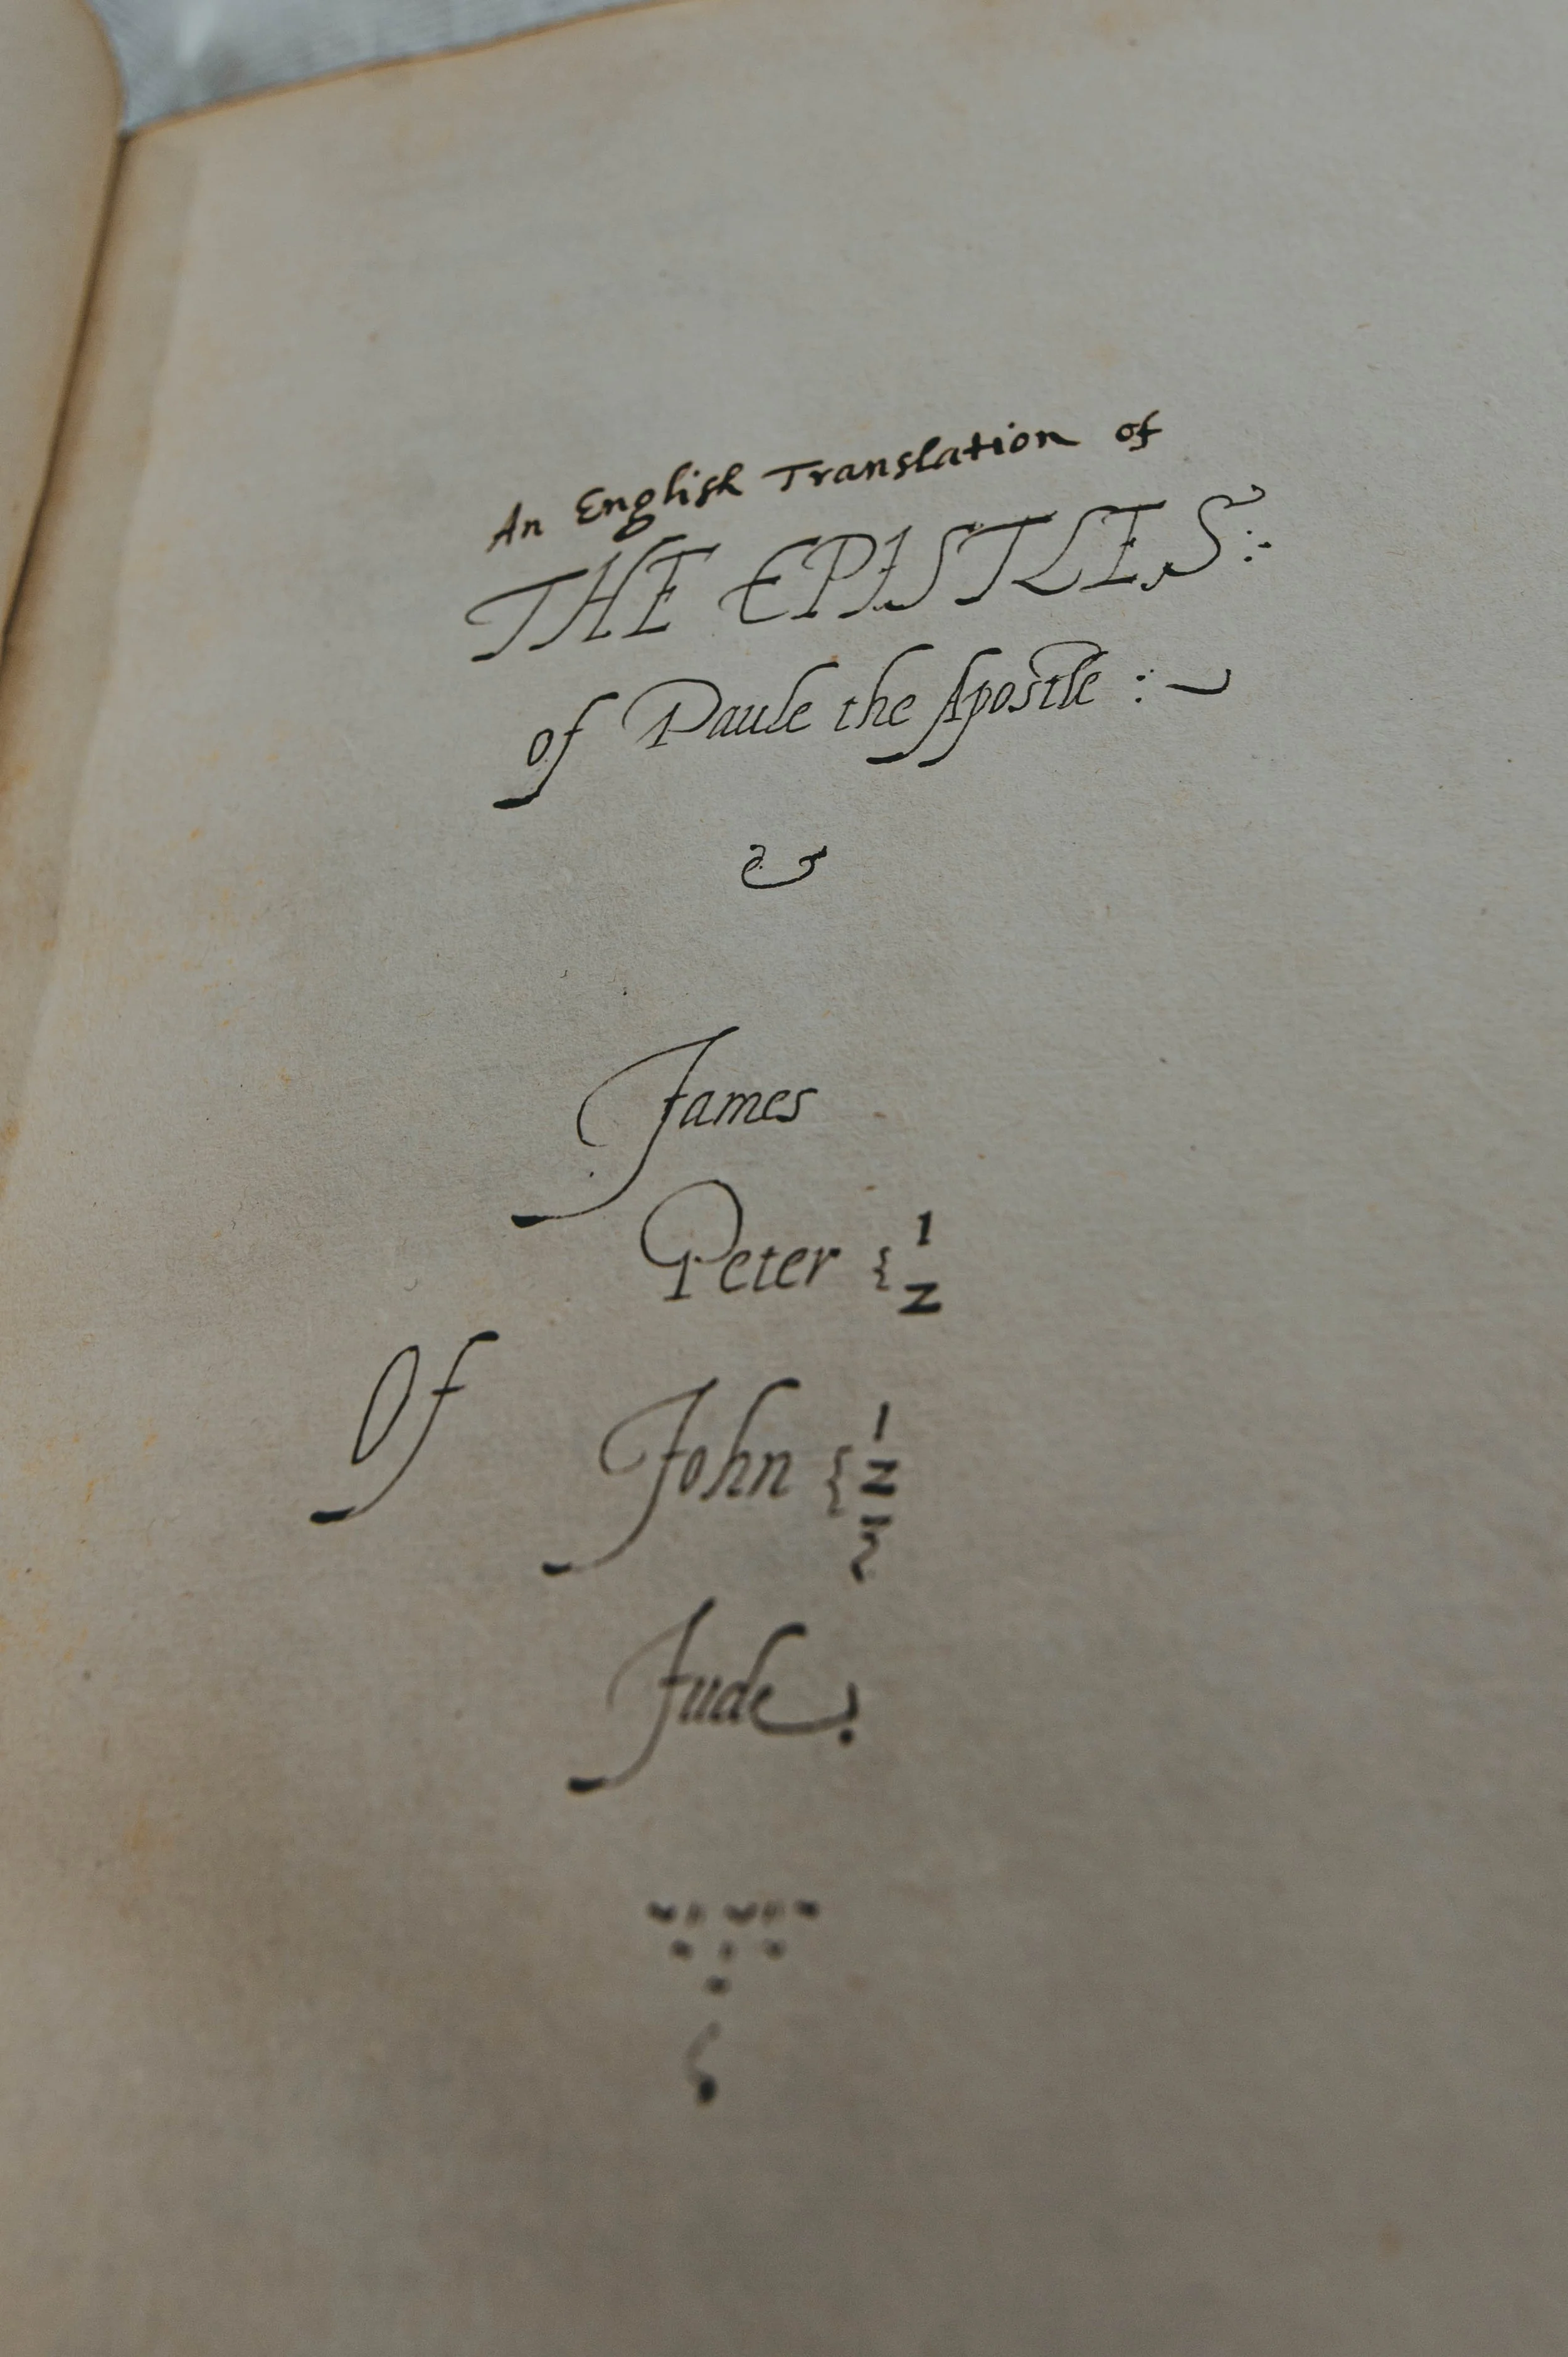 An English Translation of
THE EPISTLES:
of Paule the Apostle :
&
James
Peter { 1
2
Of
John { 1
2
3
Jude.